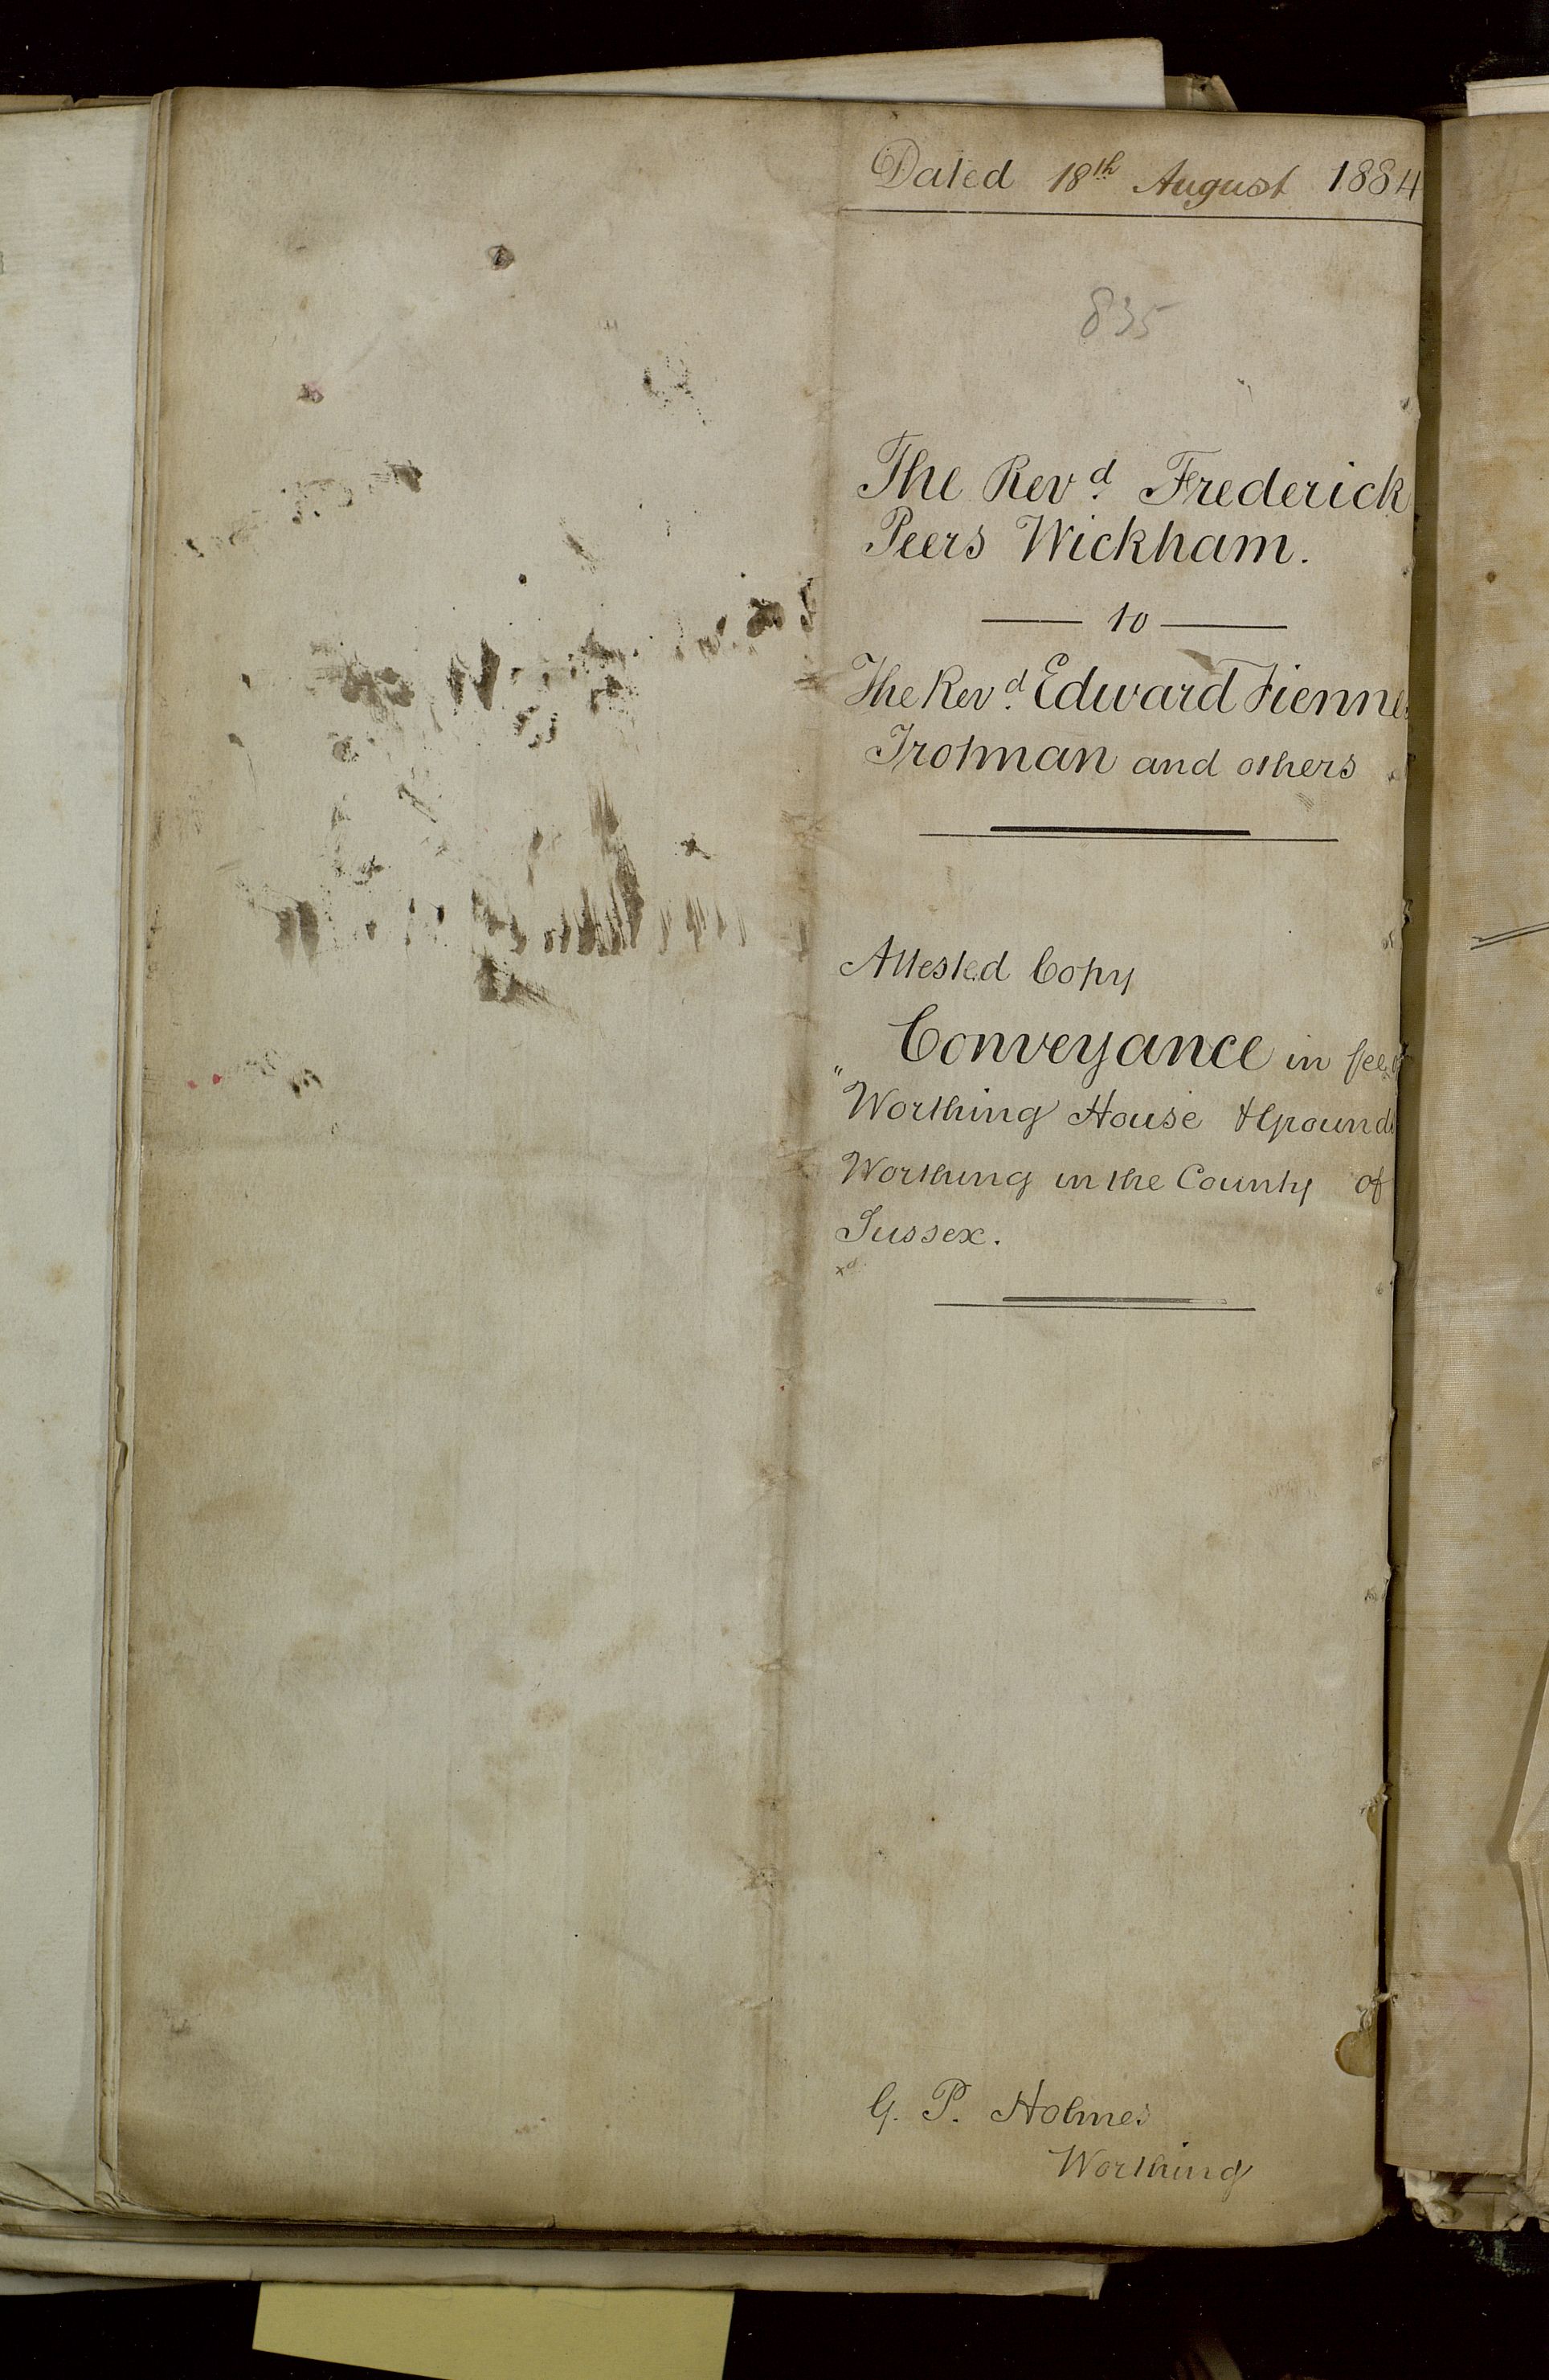 Dated 18th August 1884
835
The Revd. Frederick
Peers Wickham.
to
The Revd. Edward Fiennes
Trotman and others
Attested Copy
Conveyance in fee
"Worthing House & Grounds
Worthing in the County of
Sussex.
G. P. Holmes
Worthing